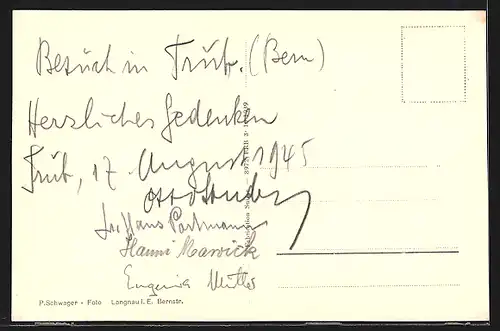 Besuch in Trub. (Bern)
Herzliches Gedenken
Trub, 17. August 1945
Otto Studer
Dr. Hans Portmann
Hanni Marwick
Eugenia Müller
P. Schwager - Foto Langnau i. E. Bernstr.